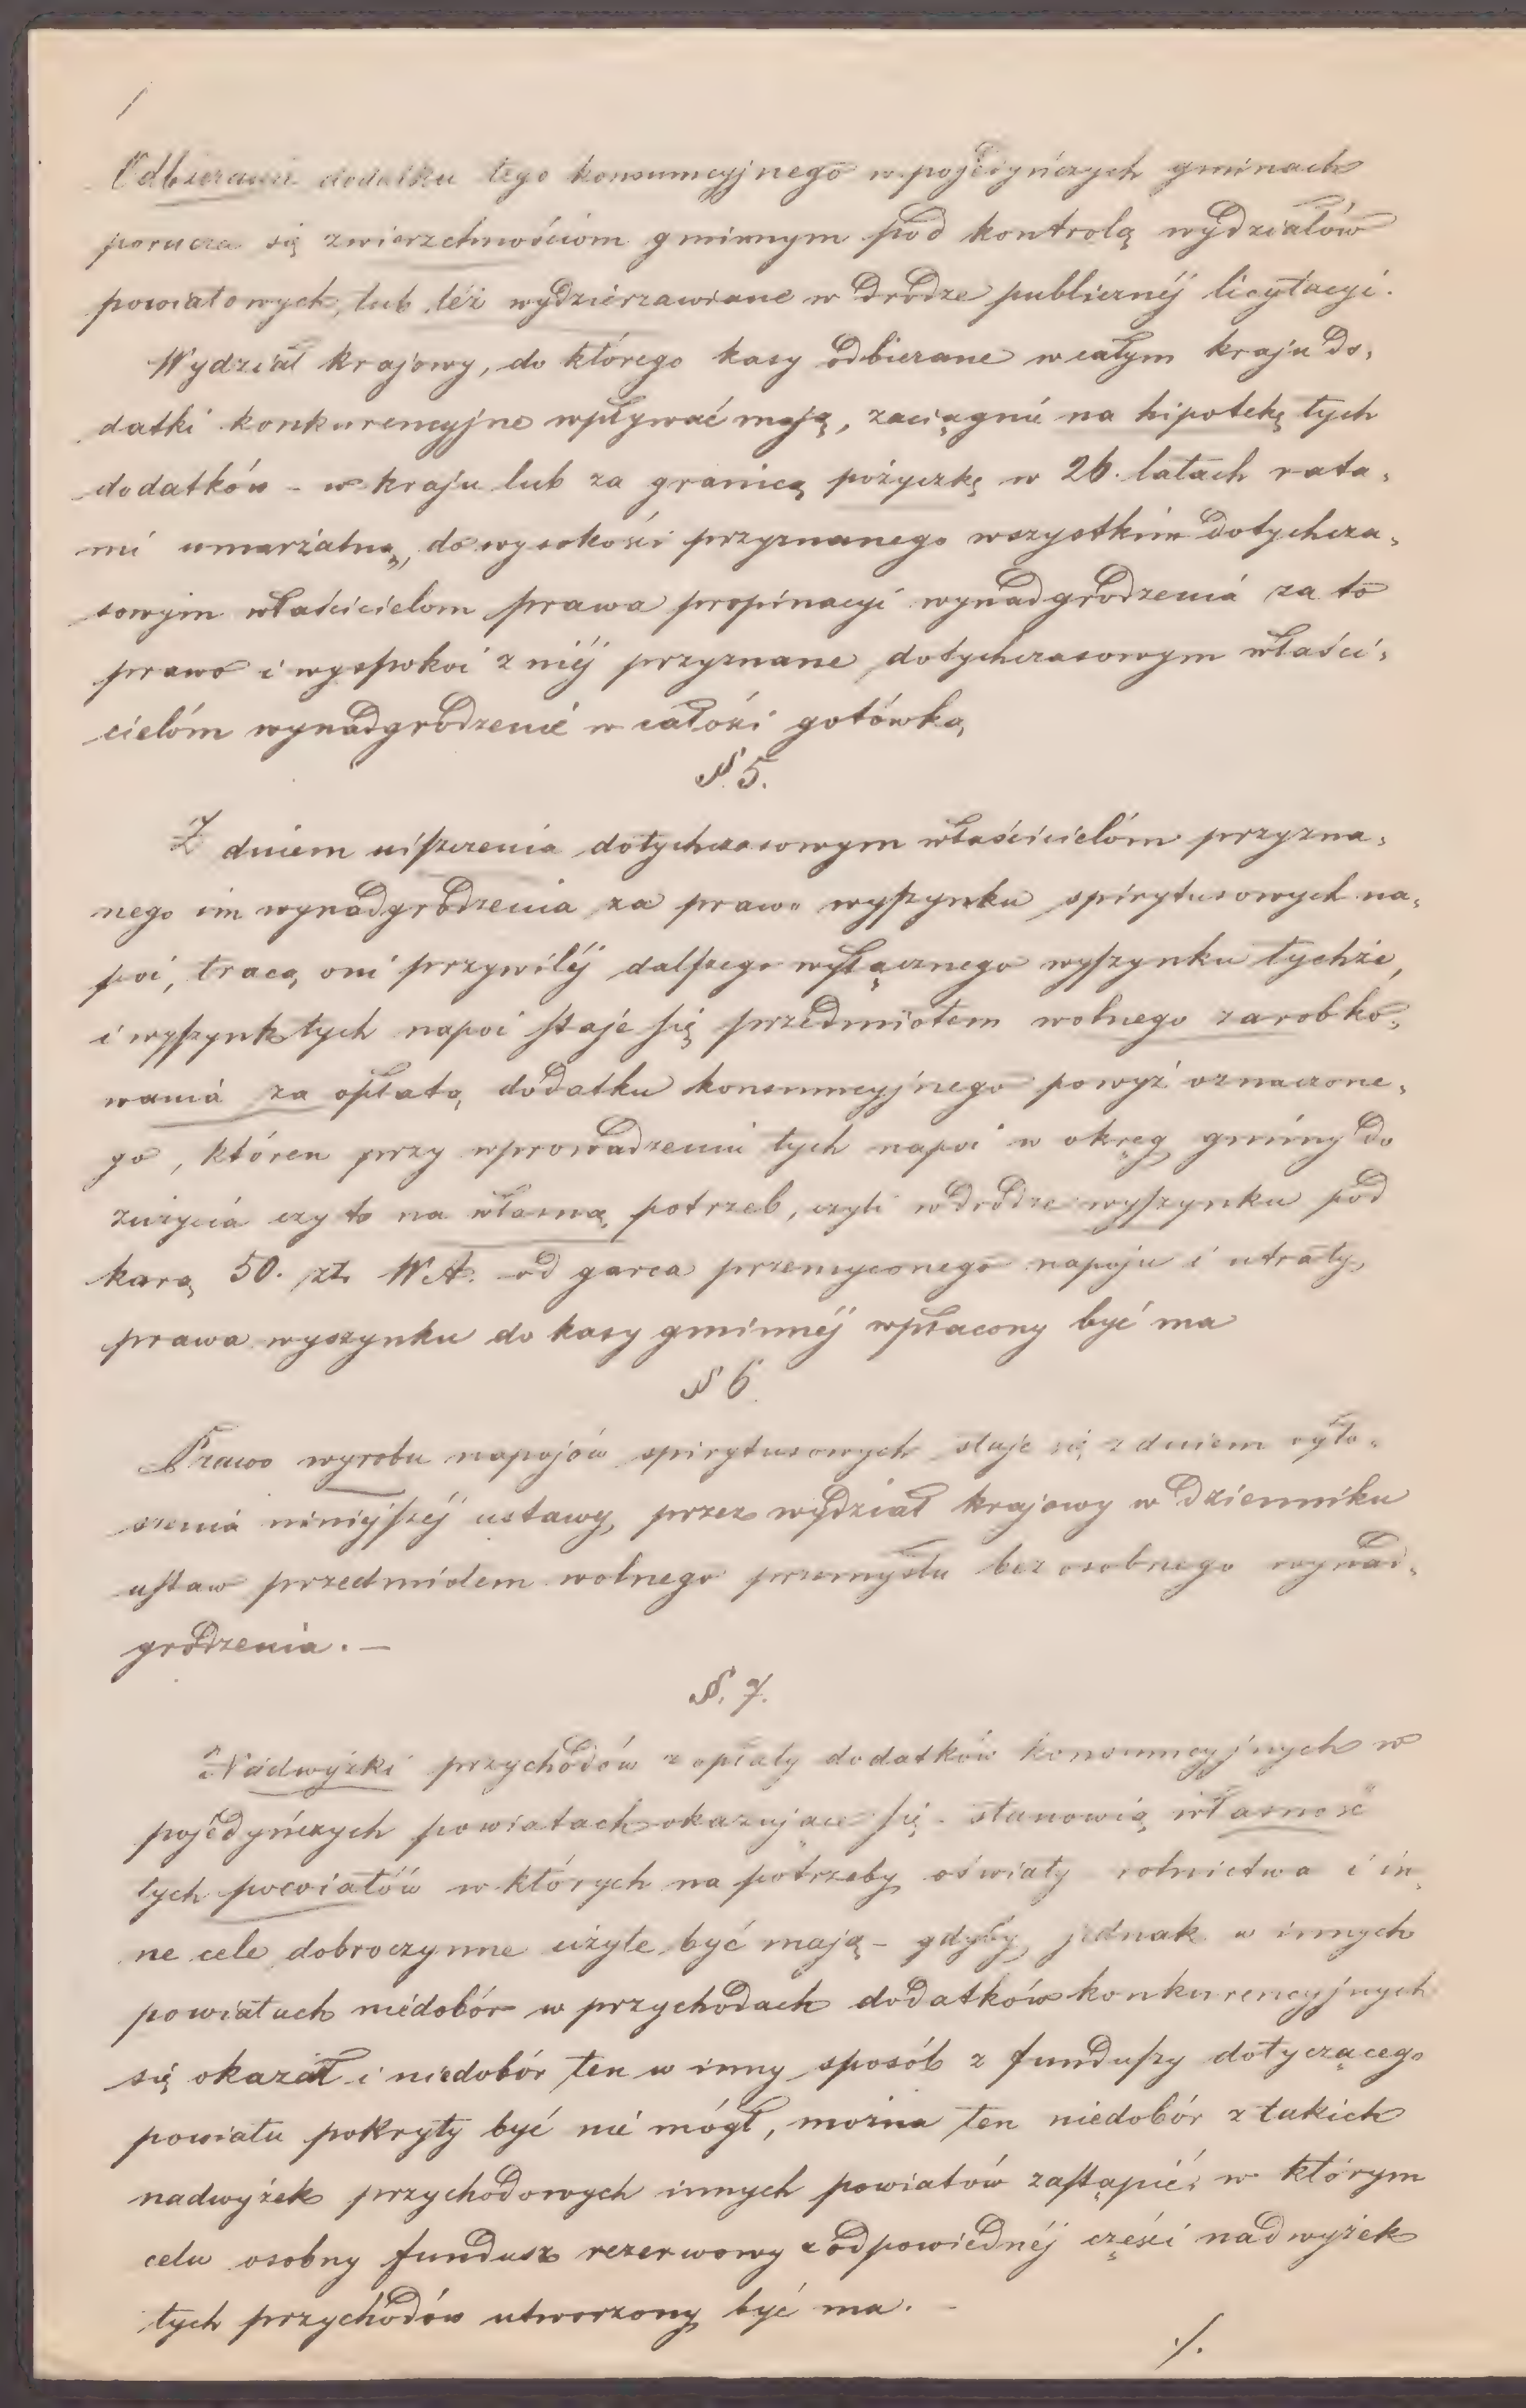 Odbieranie dodatku tego konsumcyjnego w pojedyńczych gminach
porucza się zwierzchnościom gminnym pod kontrolą wydziałów
powiatowych, lub też wydzierzawiane w drodze publicznéj licytacyi.
Wydział krajowy, do którego kasy odbierane w całym kraju do„
datki konkurencyjne wpływać mają, zaciągnie na hipotekę tych
dodatków – w kraju lub za granicą pożyczkę w 26. latach rata„
mi umarzalną, do wysokości przyznanego wszystkim dotychcza„
sowym właścicielom prawa propinacyi wynadgrodzenia za to
prawo i wyspokoi z niéj przyznane dotychczasowym właści„
cielóm wynadgrodzenie w całości gotówką
§ 5.
Z dniem uiszczenia dotychczasowym właścicielóm przyzna„
nego im wynadgrodzenia za prawo wyszynku spirytusowych na„
poi, tracą oni przywiléj dalszego wyłącznego wyszynku tychże,
i wyszynk tych napoi staje się przedmiotem wolnego zarobko„
wania za opłatą dodatku konsumcyjnego powyż oznaczone„
go, któren przy wprowadzeniu tych napoi w okręg gminy do
zużycia czy to na własną potrzeb, czyli w drodze wyszynku pod
karą 50. zł. W.A. od garca przemyconego napoju i utraty
prawa wyszynku do kasy gminnéj wpłacony być ma
§ 6.
Prawo wyrobu napojów spirytusowych staje się z dniem ogło„
szenia niniejszéj ustawy, przez wydział krajowy w dzienniku
ustaw przedmiotem wolnego przemysłu bez osobnego wynad„
grodzenia. –
§. 7.
Nadwyżki przychodów z opłaty dodatków konsumcyjnych w
pojedyńczych powiatach okazujące się – stanowią własność
tych powiatów w których na potrzeby oświaty rolnictwa i in„
ne cele dobroczynne użyte być mają – gdyby jednak w innych
powiatach niedobór w przychodach dodatków konkurencyjnych
się okazał i niedobór ten w inny sposób z funduszy dotyczącego
powiatu pokryty być nie mógł, można ten niedobór z takich
nadwyżek przychodowych innych powiatów zastąpić, w którym
celu osobny fundusz rezerwowy z odpowiednéj części nadwyżek
tych przychodów utworzony być ma. –
./.